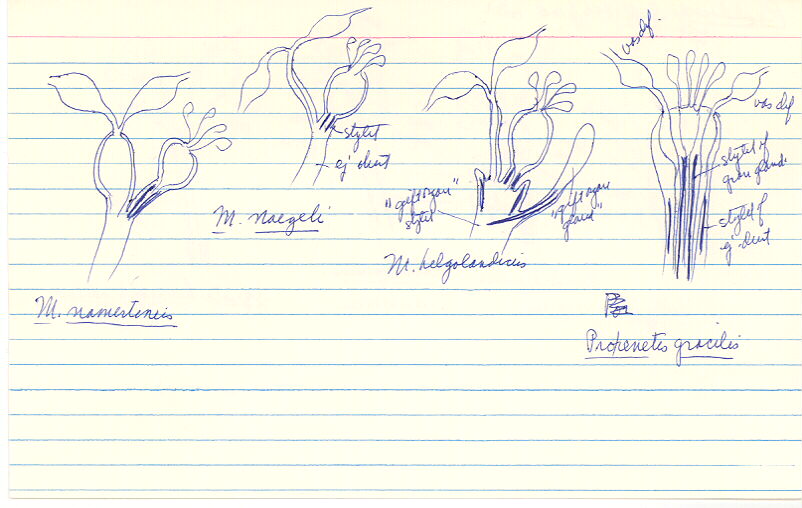 stylet
ej duct
M. naegeli
M. namertensis
"giftorgan"
stylet
"giftorgan
gland"
M. helgolandicus
vas def.
vas def
stylet of
gran gland.
stylet of
ej duct
Prohenetes gracilis